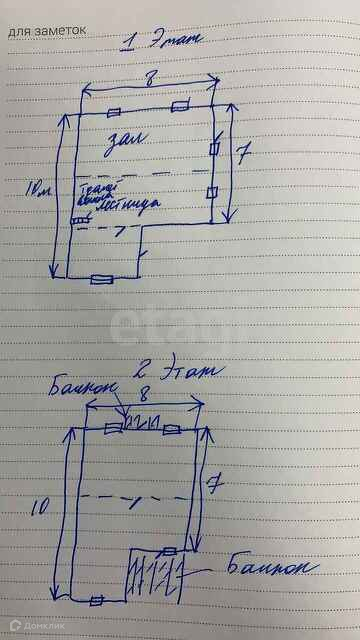 для заметок
1 Этаж
8
зал
7
10м
лестница
etagi
2 Этаж
Балкон
8
7
10
Балкон
Домклик